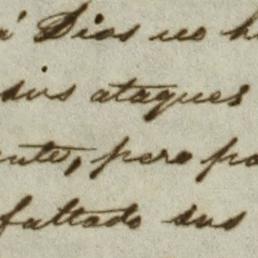 á Dios no h
sus ataques
ente, pero po
faltado sus